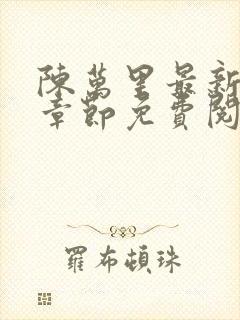 陳萬里最新
章節免費閱
羅布頓珠